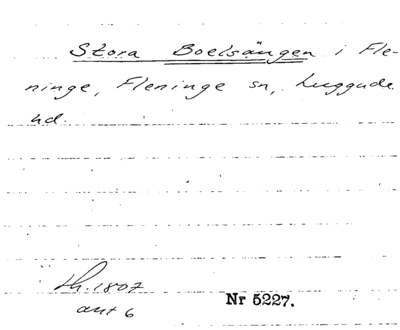 Stora Boelsängen i Fle-
ninge, Fleninge sn, Luggude
hd.
th. 1807
ant 6
Nr 5227.